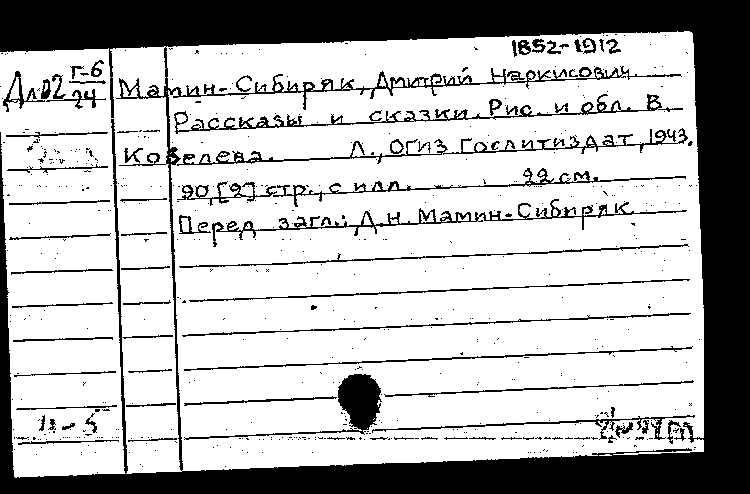 1852-1912
Г-6
Дл02 24
Мамин-Сибиряк, Дмитрий Наркисович
Рассказы и сказки. Рис. и обл. В.
Ковелева. Л., ОГИЗ Гослитиздат, 1943.
90, [2] стр., с илл. 22 см.
Перед загл.: Д.Н. Мамин-Сибиряк
11-5